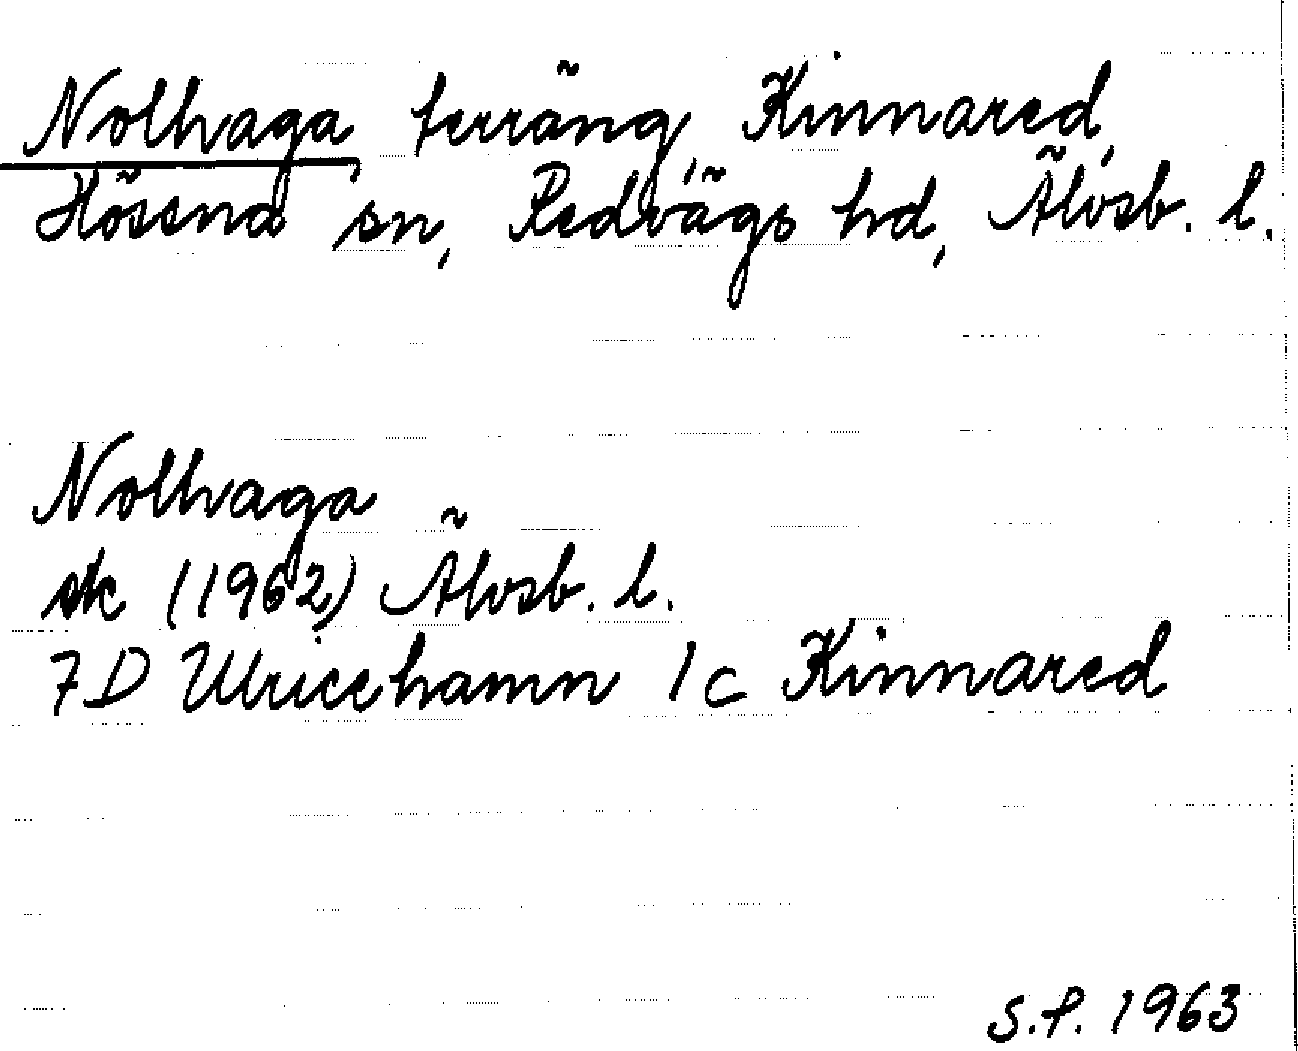 Nolhaga, terräng, Kinnared,
Hösena sn, Redvägs hd, Älvsb. l.
Nolhaga
ek (1962) Älvsb. l.
7D Ulricehamn 1c Kinnared
S.P. 1963